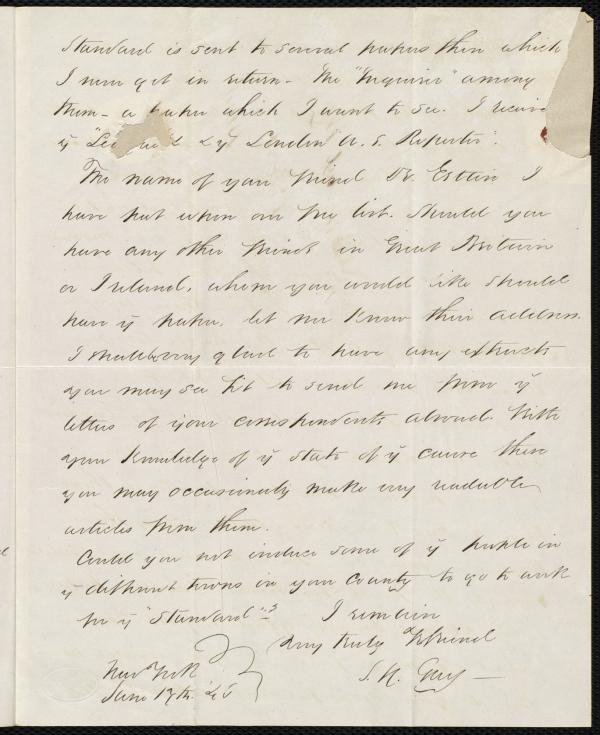 Standard is sent to several papers then which
I now get in return - The "Inquirer" among
them - a paper which I want to see. I receive
ye "Le & ye London A. S. Reporter".
The name of your friend Dr. Estlin I
have put upon our free list. Should you
have any other friends in Great Britain
or Ireland, whom you would like should
have ye paper, let me know their address.
I shall be very glad to have any extracts
you may see fit to send me from ye
letters of your correspondents abroad. With
your knowledge of ye state of ye cause there
you may occasionally make very readable
articles from them.
Could you not induce some of ye people in
ye different towns in your County to go to work
for ye "Standard"?
I remain
Very truly Yr friend
S. H. Gay -
New York
June 17th. 45